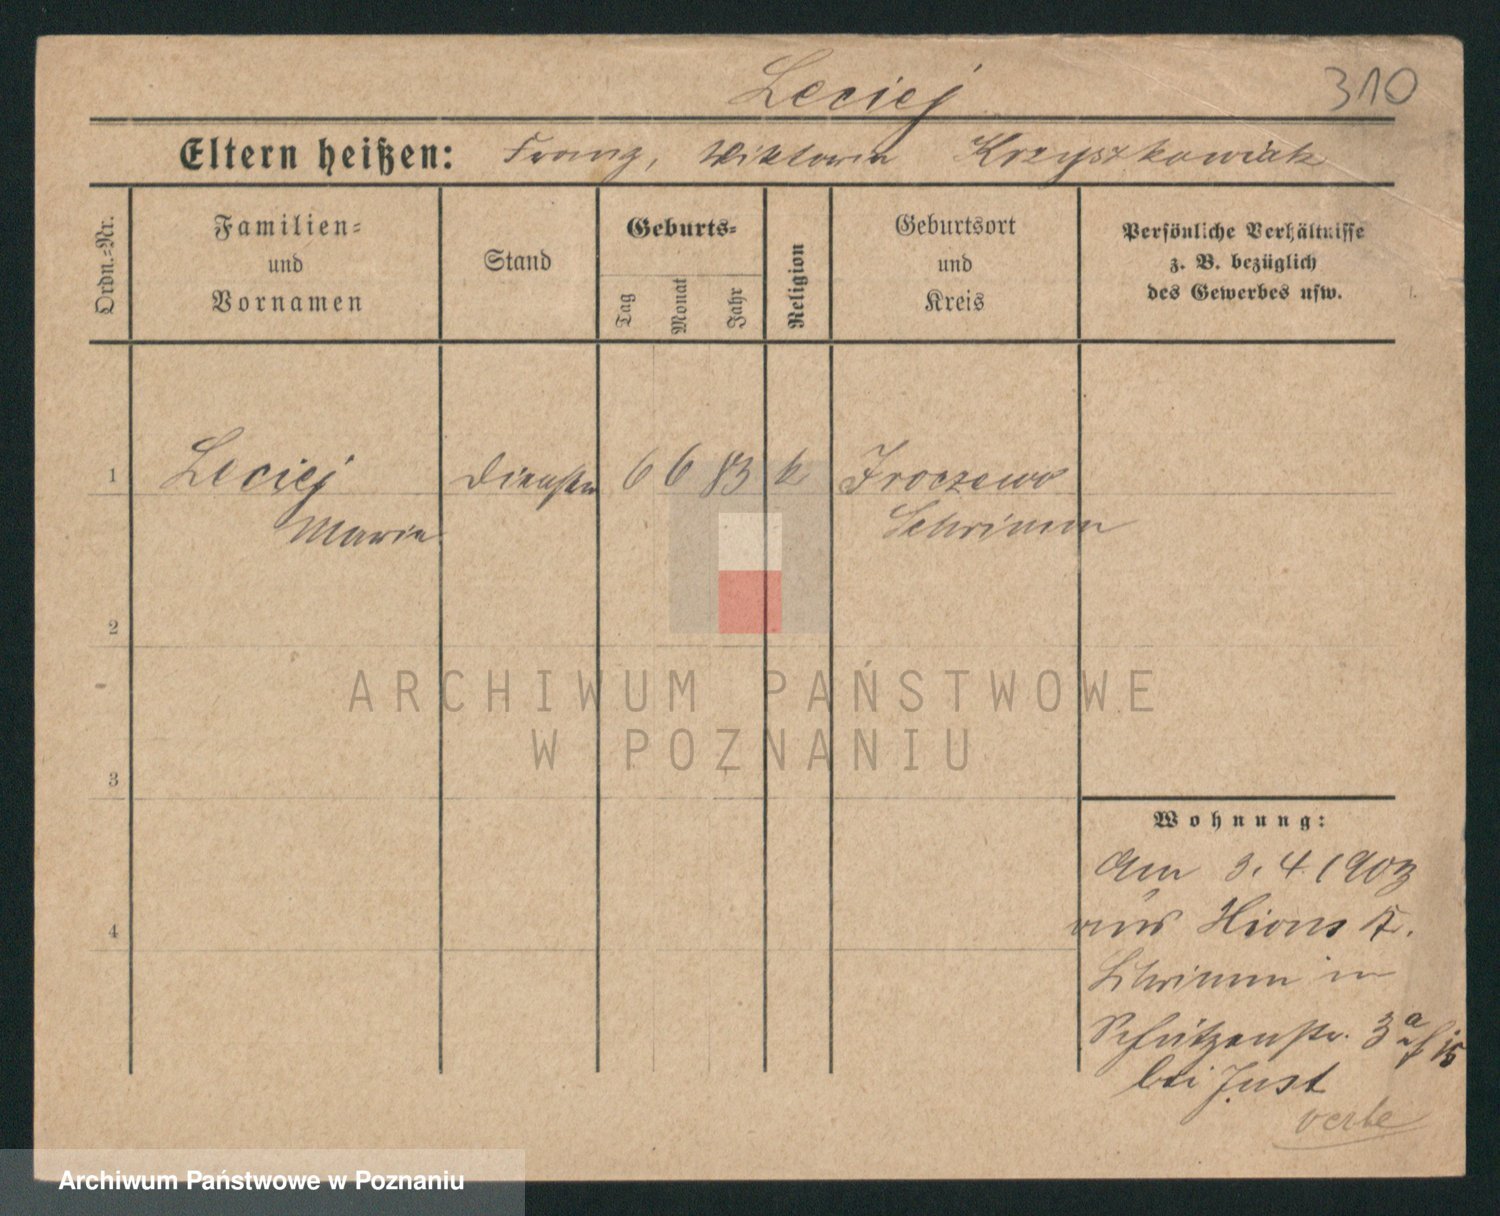 Leciej
310
Eltern heißen: Franz, Wiktoria Krzyszkowiak
Ordn.-Nr.
Familien-
und
Vornamen
Stand
Geburts-
Tag
Monat
Jahr
Religion
Geburtsort
und
Kreis
Persönliche Verhältnisse
z. B. bezüglich
des Gewerbes usw.
1 Leciej Dienstm 6 6 83 k Jroczewo
Marie Schrimm
2
3
4
ARCHIWUM PAŃSTWOWE
W POZNANIU
Wohnung:
Am 3.4.1903
aus Xions K.
Schrimm in
Schützenstr. 3a
bei Just
Archiwum Państwowe w Poznaniu